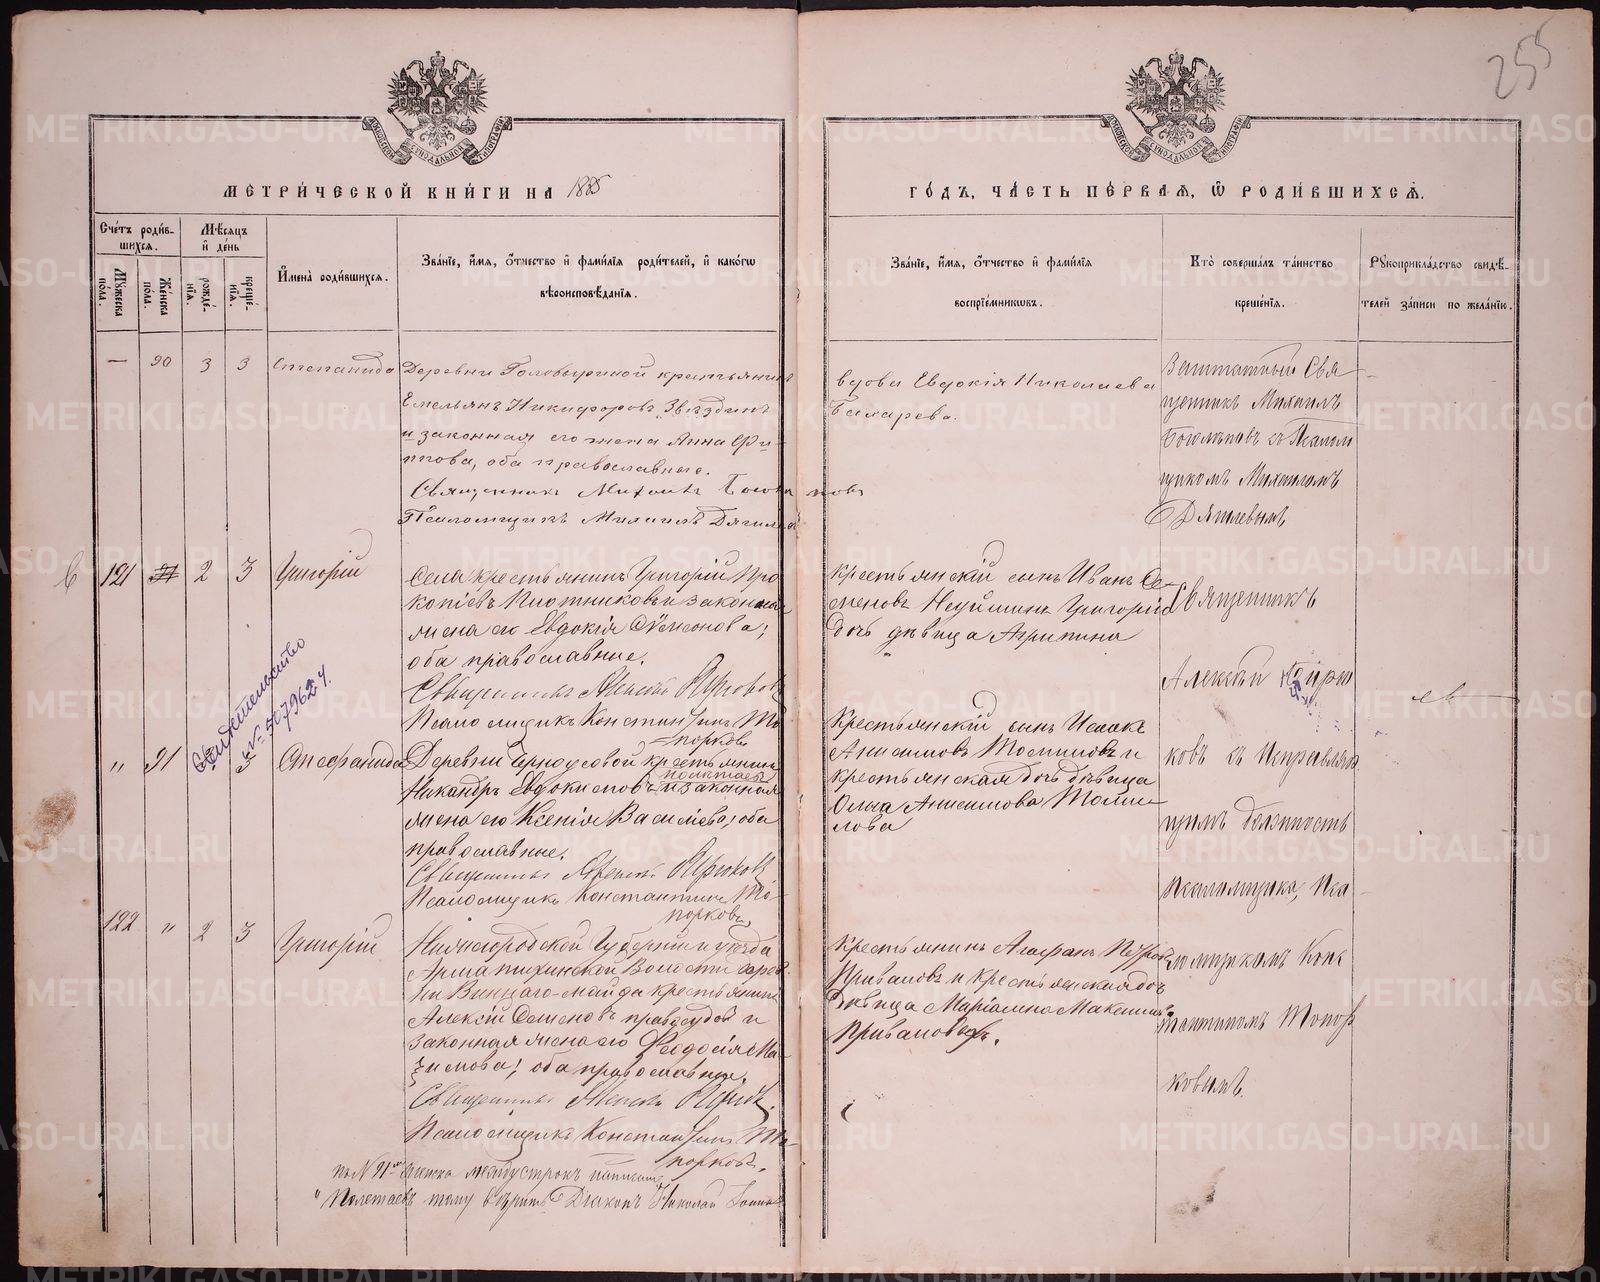 255
МЕТРИ́ЧЕСКОЙ КНИ́ГИ НА 1885
ГО́ДЪ, ЧА́СТЬ ПЕ́РВАЯ, Ѿ РОДИ́ВШИХСЯ.
Сче́тъ роди́в-
шихся.
Мѣ́сяцъ
и҆ де́нь
Му́жеска по́ла.
Же́нска по́ла.
рожде́-
нїя.
креще́-
нїя.
И҆мена̀ роди́вшихся.
Зва́нїе, и҆́мя, ѻ҆́тчество и҆ фами́лїя роди́телей, и҆ како́гѡ
вѣроисповѣ́данїя.
Зва́нїе, и҆́мя, ѻ҆́тчество и҆ фами́лїя
воспрїе́мникѡвъ.
Кто̀ соверша́лъ та́инство
креще́нїя.
Рꙋкоприкла́дство свидѣ́-
телей за́писи по жела́нїю.
— 90 3 3 Степанида
Деревни Головыриной крестьянинъ
Емельянъ Никифоровъ Звѣздинъ
и законная его жена Анна Фи-
липпова, оба православные.
Священникъ Михаилъ
Псаломщикъ Михаилъ Дягилевъ
вдова Евдокія Николаева
Бахарева.
Заштатный Свя
щенникъ Михаилъ
съ Псалом
щикомъ Михаиломъ
Дягилевымъ
121 91 2 3 Григорій
Села крестьянинъ Григорій Про
копіевъ Плотниковъ и законная
жена его Евдокія Сѵмеонова;
оба православные.
Священникъ Алексій
Псаломщикъ Константинъ То
порковъ
Крестьянскій сынъ Иванъ Се-
меновъ Неуйминъ Григорій
дочь дѣвица Агрипина
Священникъ
Алексѣй
ковъ съ Исправляю
щимъ должность
Псаломщика, Пса
ломщикомъ Конс
тантиномъ Топор
ковымъ.
Свидѣтельство
№ 507962 ч.
" 91 Стефанида
Деревни Черноусовой крестьянинъ
Полетаевъ
Никандръ Евдокимовъ и законная
жена его Ксенія Василіева; оба
православные.
Священникъ Алексій
Псаломщикъ Константинъ То-
порковъ
Крестьянскій сынъ Исаакъ
Анисимовъ Томиловъ и
крестьянская дочь дѣвица
Ольга Анисимова Томи-
лова
122 " 2 3 Григорій
Нижегородской Губерніи уѣзда
Волости дерев
ни крестьянинъ
Алексій Семеновъ и
законная жена его Ѳеодосія Ма
ксимова; оба православные.
Священникъ Алексій
Псаломщикъ Константинъ То
порковъ.
Крестьянинъ Агафонъ Петровъ
Приваловъ и крестьянская дочь
дѣвица Маріамна Максимова
Привалова.
по № 91 женска между строкъ написан
"Полетаевъ" тому вѣрить Діаконъ Николай